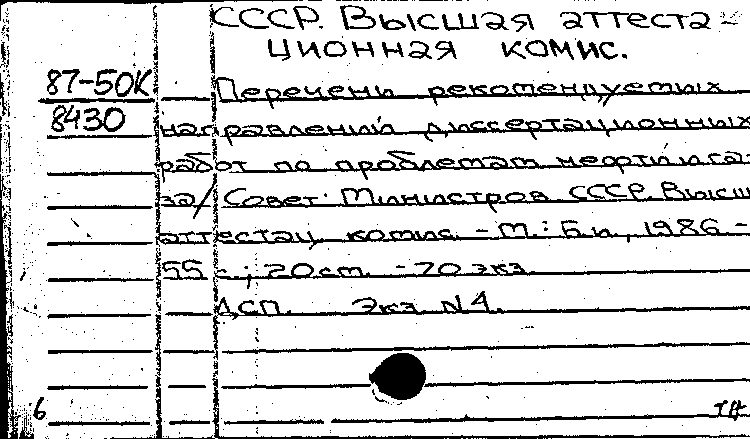 СССР. Высшая аттеста-
ционная комис.
87-50К Перечень рекомендуемых
8430 направлений диссертационных
работ по проблемам нефти и га-
за/ Совет Министров СССР. Высш.
аттестац. комис. - М.: Б.и., 1986 -
55 с.; 20 см. - 70 экз.
ДСП. Экз. N4.
6